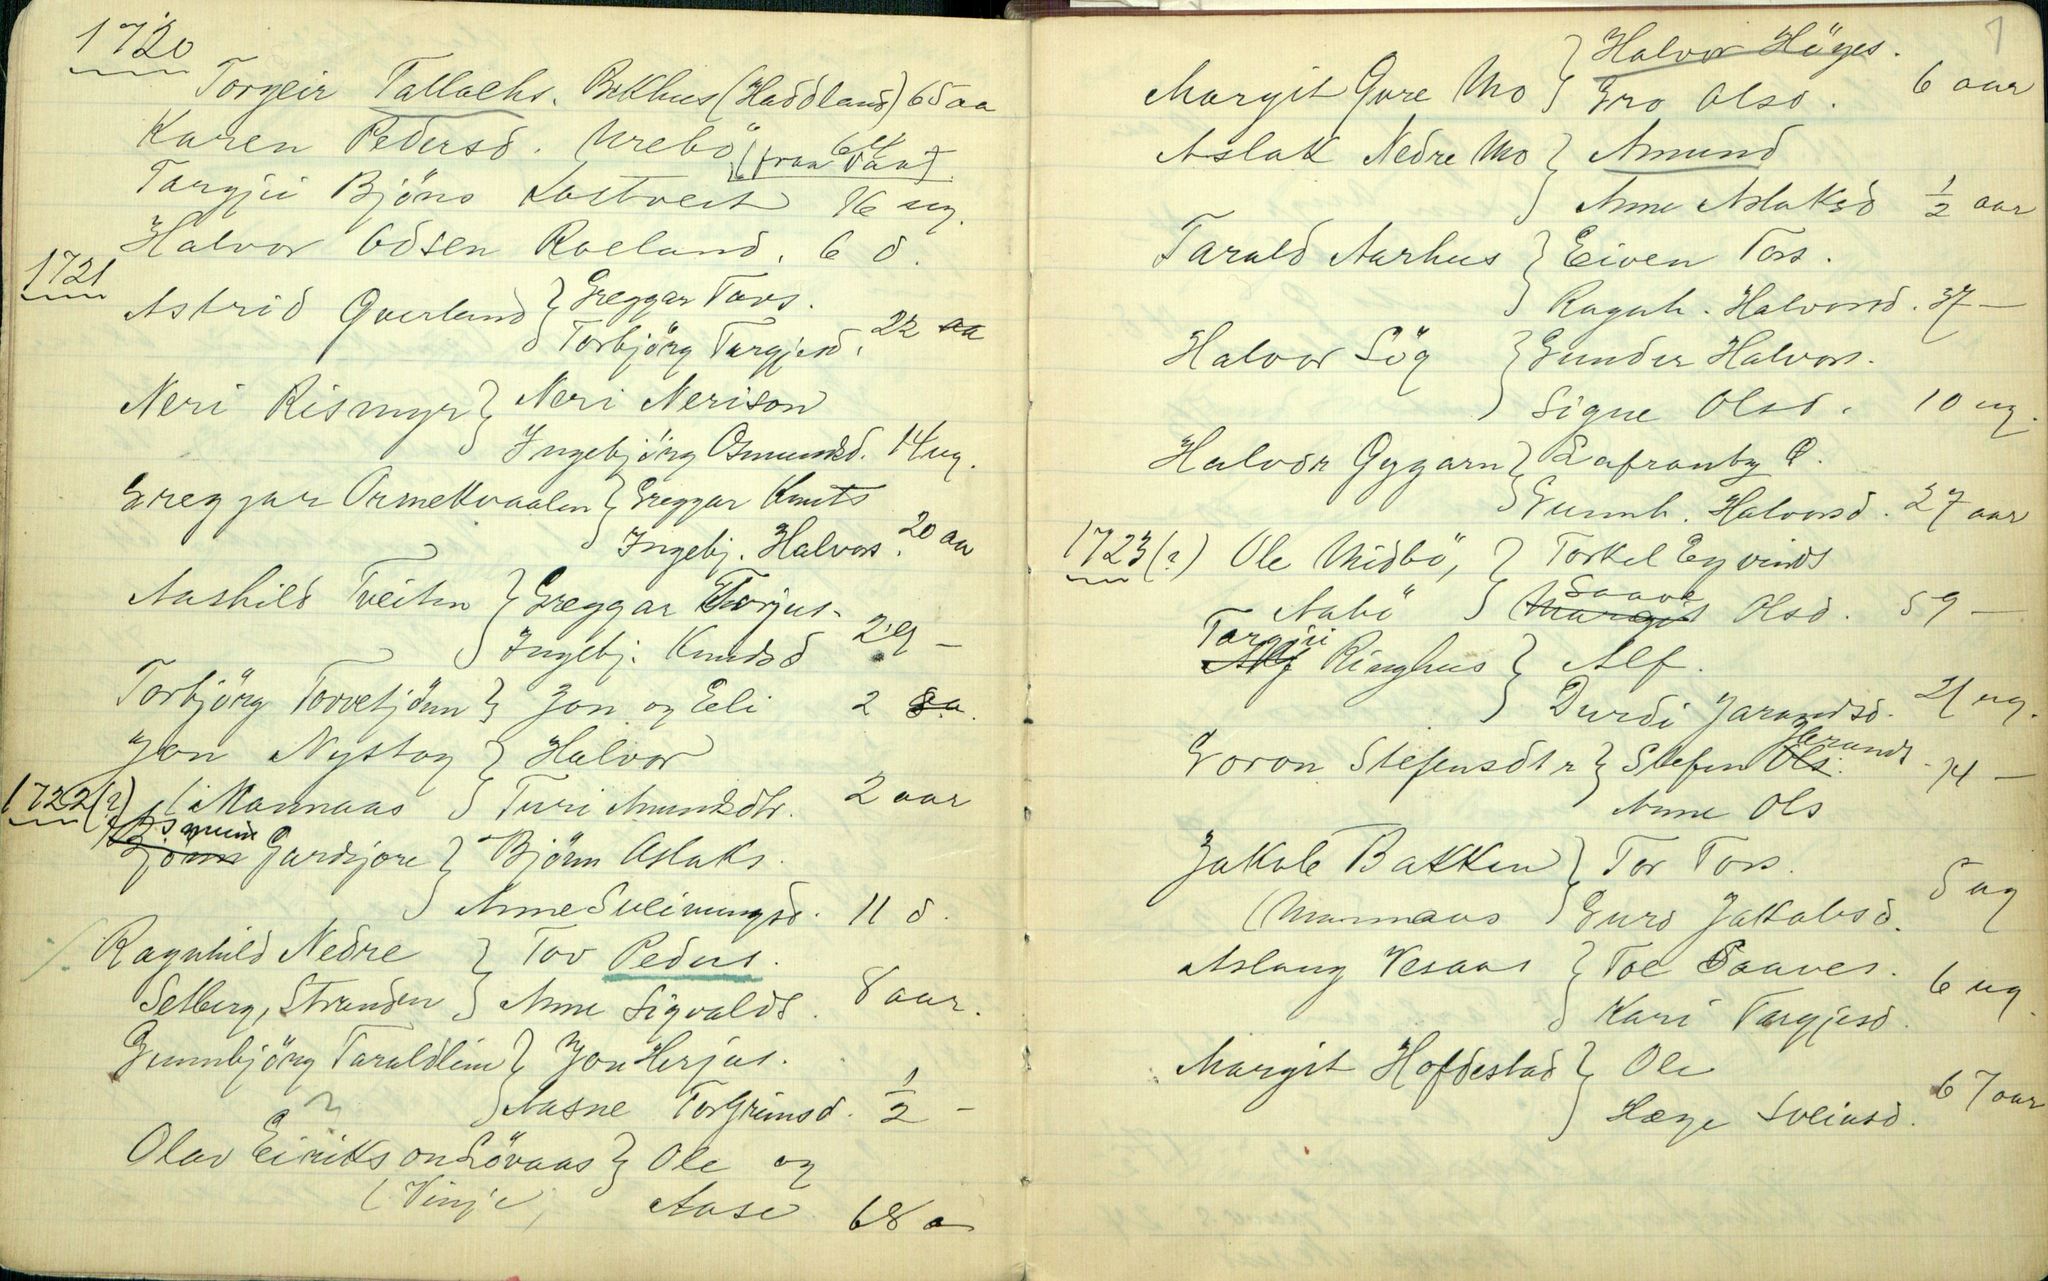 1720
Torgeir Tallaeks. Bekhus (Haddland) 65 aa
Karen Pedersd. Urebö 64
(fraa Vaa)
Targjei Björns Lostveit 16 ug.
Halvor Odsen Roeland. 6 d.
1721
Astrid Qverland } Greggar Tovs.
Torbjörg Targjesd. 22 aa
Neri Rismyr } Neri Nerison
Ingebjörg Osmundsd. 14 ug.
Greggar Ormekvaalen } Greggar Knuts
Ingebj. Halvors. 20 aa
Aashild Tveiten } Greggar Torjus.
Ingebj. Knudsd 29 –
Torbjörg Torvetjönn } Jon og Eli 2
Jon Nystog } Halvor
1722(?) i Mannaas Turi Amundsdtr. 2 aar
Björnn Gardsjore } Björnn Aslaks.
Anne Sveinungsd. 11 d.
Ragnhild Nedre } Tov Peders.
Selberg, Stranden Anne Sigvalds. 8 aar.
Gunnbjörg Taraldlien } Jon Herjus.
Aasne Torgrimsd. ½ –
?
Olav Eirikson Lövaas } Ole og
(Vinje) Aase 68 a
7
Margit Gvre Mo } Halvor Höges.
Gro Olsd. 6 aar
Aslak Nedre Mo } Amund
Anne Aslaksd ½ aar
Tarald Aarhus } Eiven Tors.
Ragnh. Halvorsd. 37 –
Halvor Lög } Gunder Halvors.
Signe Olsd. 10 ug.
Halvor Gygarn }
Gunnh. Halvorsd. 27 aar
1723(?) Ole Midbö, } Torkel Eyvinds
Saave
Nabö Margit Olsd. 59 –
Targjei
Alf Ringhus } Alf.
Durdi Jarandsd. 21 ug.
Jarands
Goron Stefensdtr } Stefen Ols. 14 –
Anne Ols
Jakob Bakken } Tor Tors.
(Mannaas Guro Jakobsd. 5 ug
Aslaug Vesaas } Toe Saaves.
Kari Targjesd. 6 ug.
Margit Hofdestad } Ole
Hæge Sveinsd. 67 aar